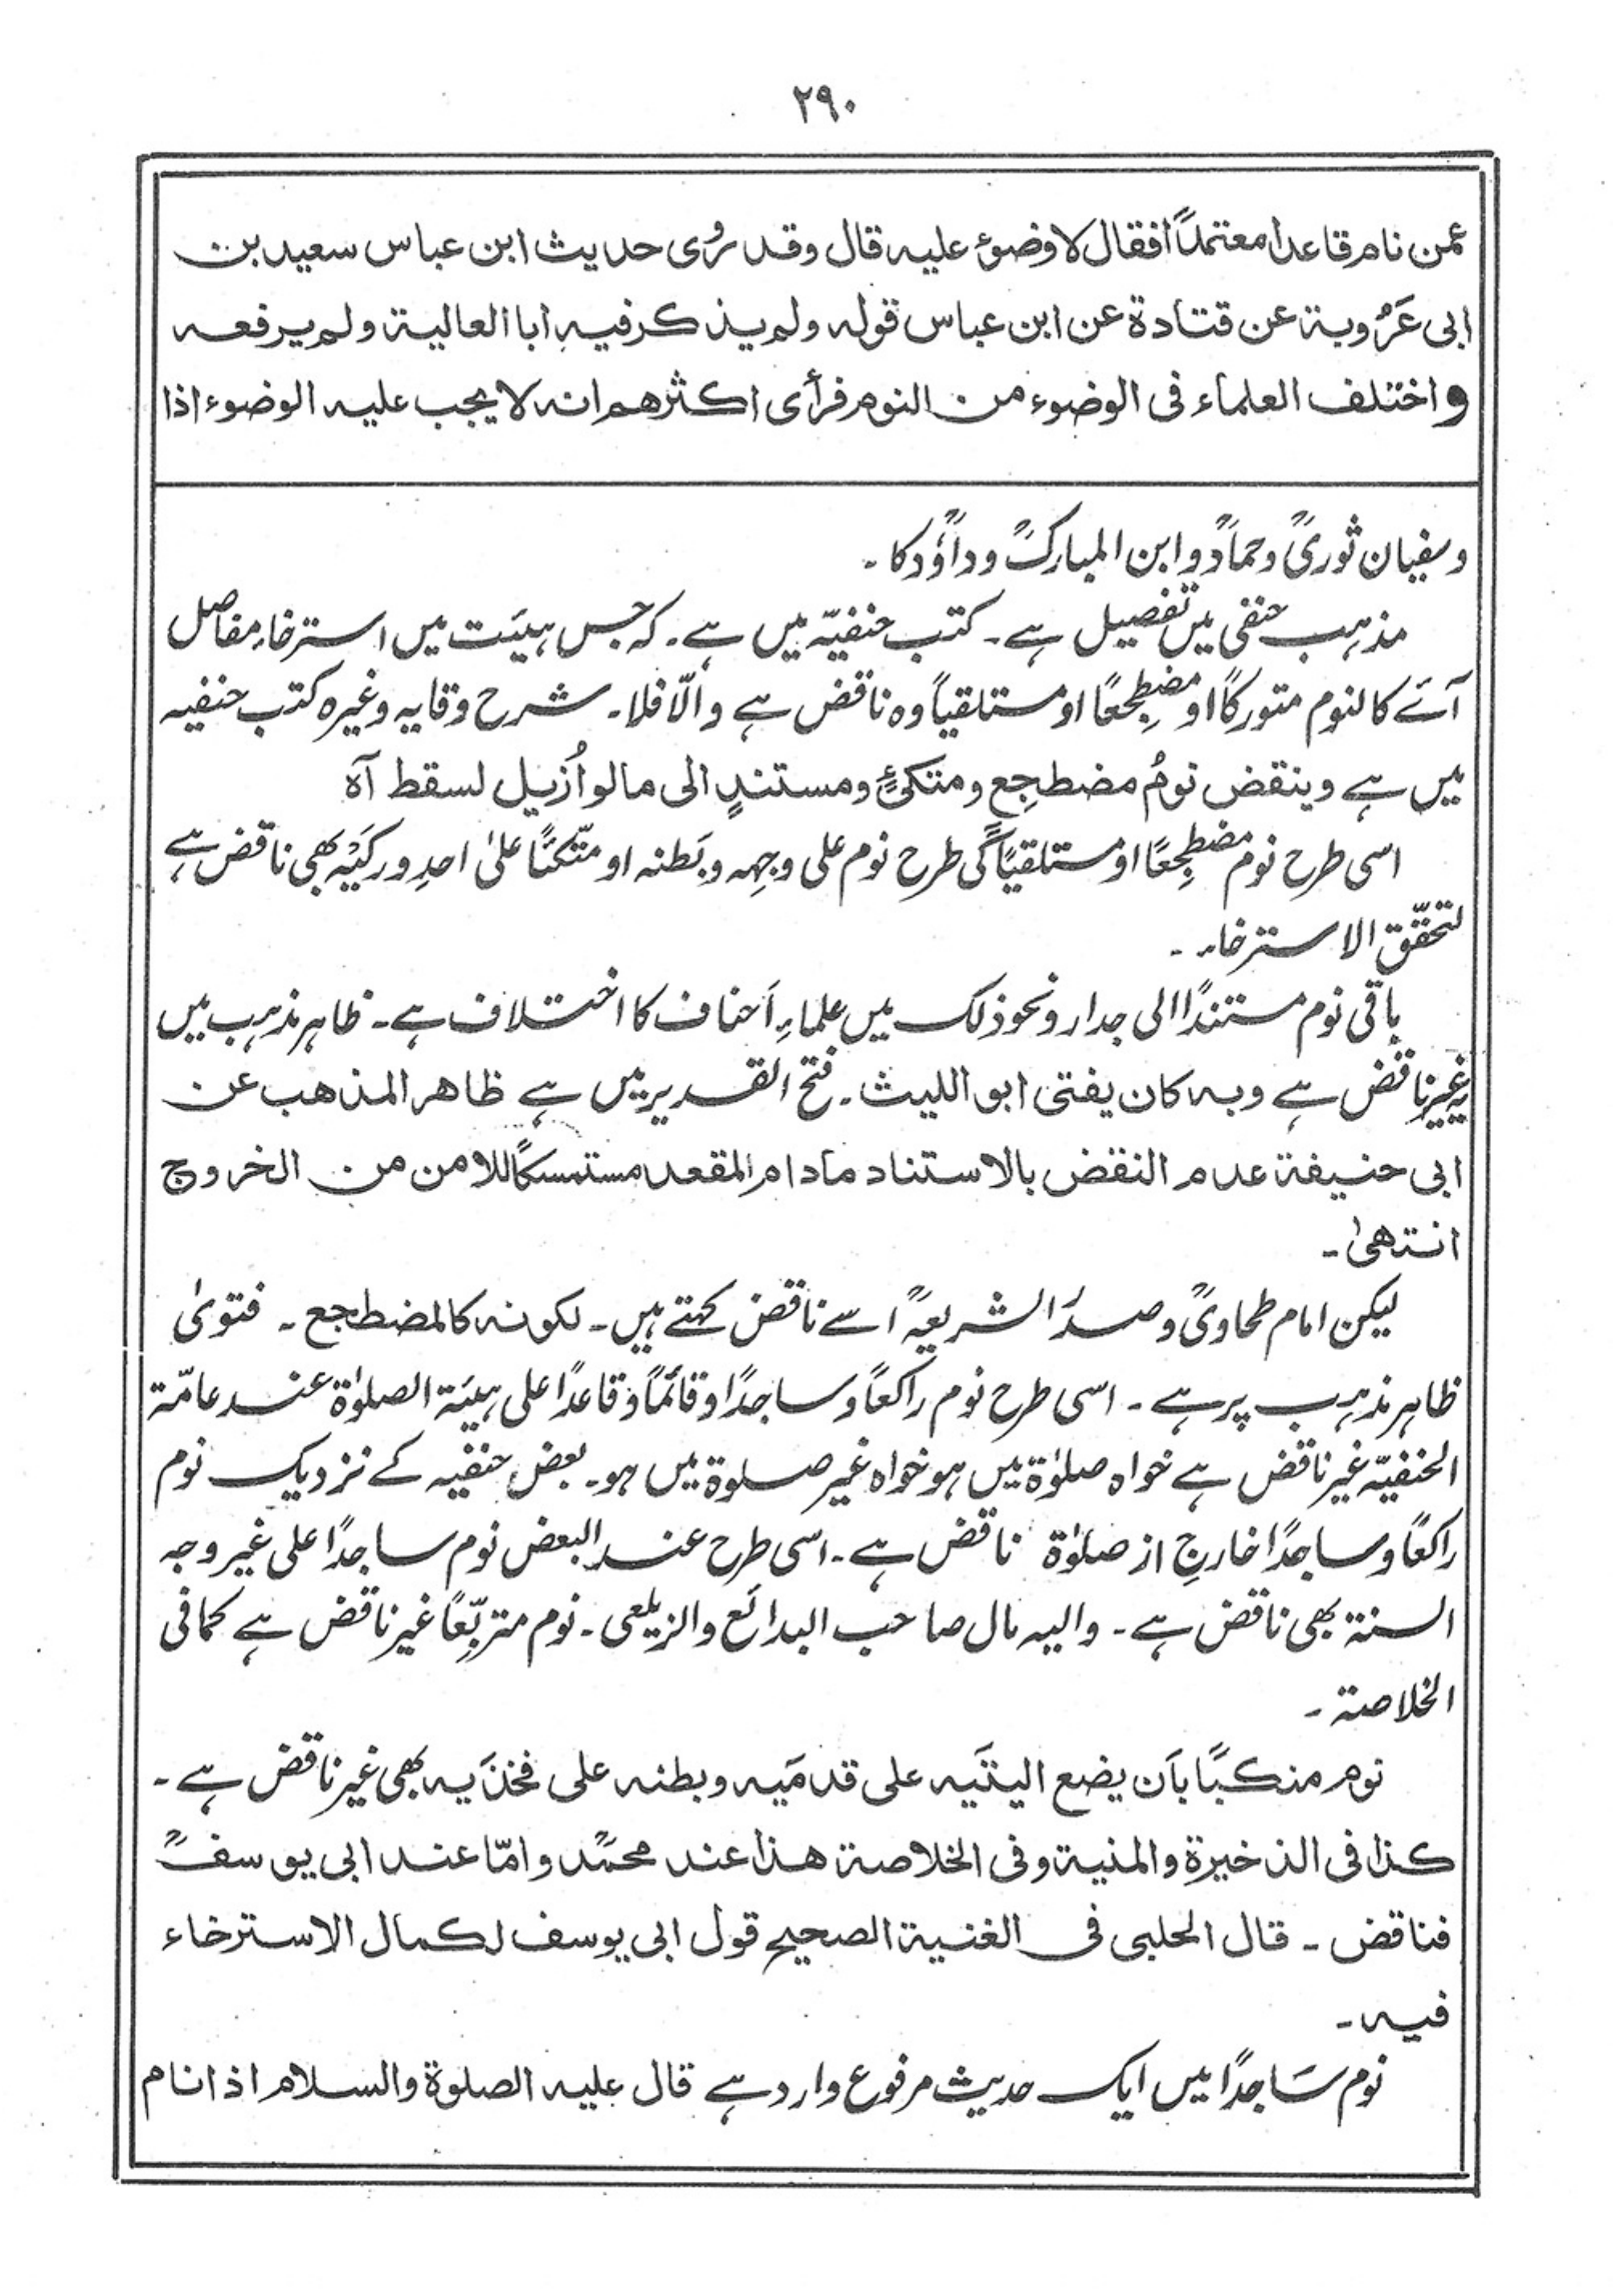 ۲۹۰
عمن نام قاعدا معتمداً فقال لا وضوء عليه قال وقد رُوى حديث ابن عباس سعيد بن
ابى عَرُوبة عن قتادة عن ابن عباس قوله ولم يذكر فيه ابا العالية ولم يرفعه
واختلف العلماء فى الوضوء من النوم فرأى اكثرهم انه لا يجب عليه الوضوء اذا
وسفیان ثوریؒ وحمادؒ وابن المبارکؒ وداؤدؒ کا ۔
مذہب حنفی میں تفصیل ہے۔ کتب حنفیّہ میں ہے۔ کہ جس ہیئت میں استرخاء مفاصل
آئے کالنوم متورکًا او مضطجِعًا او مستلقیاً وہ ناقض ہے والّا فلا۔ شرح وقایہ وغیرہ کتب حنفیہ
میں ہے وینقض نومُ مضطجِعٍ ومتکئٍ ومستندٍ الى مالو اُزیل لسقط آہ
اسی طرح نوم مضطجِعًا او مستلقیًا کی طرح نوم علی وجہہ وبَطنہ او متّکئًا علیٰ احدِ ورکَیْہ بھی ناقض ہے
لتحقّق الاسترخاء ۔
باقی نوم مستندًا الی جدار ونحو ذلک میں علماءِ اَحناف کا اختلاف ہے۔ ظاہر مذہب میں
یہ غیر ناقض ہے وبہ کان یفتی ابو اللیث۔ فتح القدیر میں ہے ظاهر المذهب عن
ابى حنيفة عدم النقض بالاستناد مادام المقعد مستمسكًا للامن من الخروج
انتهیٰ ۔
لیکن امام طحاویؒ وصدرُ الشریعہؒ اسے ناقض کہتے ہیں۔ لکونہ کالمضطجع ۔ فتویٰ
ظاہر مذہب پر ہے ۔ اسی طرح نوم راکعاً وساجدًا وقائماً وقاعدًا علی ہیئۃ الصلوٰۃ عند عامّۃ
الحنفیّہ غیر ناقض ہے خواہ صلوٰۃ میں ہو خواہ غیر صلوۃ میں ہو۔ بعض حنفیہ کے نزدیک نوم
راکعًا وساجدًا خارجِ از صلوٰۃ ناقض ہے۔ اسی طرح عند البعض نوم ساجدًا علی غیر وجہ
السنۃ بھی ناقض ہے ۔ والیہ مال صاحب البدائع والزیلعی ۔ نوم متربّعًا غیر ناقض ہے کما فی
الخلاصۃ ۔
نوم منکبًّا بأن يضع اليتَيه على قدمَيه وبطنه على فخذَيه بھی غیر ناقض ہے ۔
كذا فى الذخيرة والمنية وفى الخلاصة هذا عند محمدؒ وامّا عند ابى يوسفؒ
فناقض ۔ قال الحلبى فى الغنية الصحيح قول ابى يوسف لكمال الاسترخاء
فيه ۔
نوم ساجدًا میں ایک حدیث مرفوع وارد ہے قال عليه الصلوة والسلام اذا نام